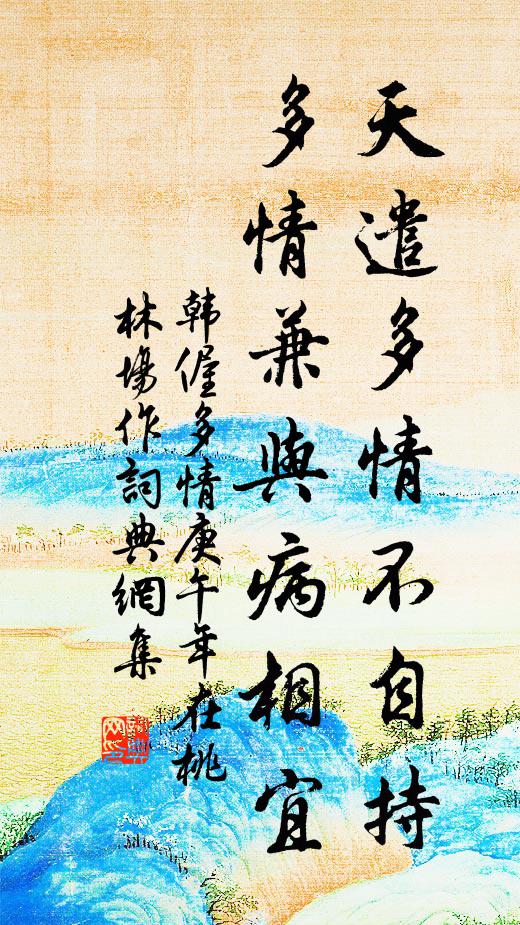 天遣多情不自持
多情兼與病相宜
韩偓多情庚午年在桃
林場作詞典網集